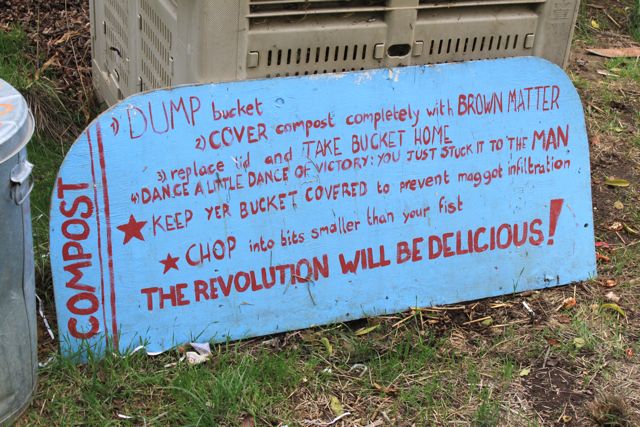 COMPOST
1) DUMP bucket
2) COVER compost completely with BROWN MATTER
3) replace lid and TAKE BUCKET HOME
4) DANCE A LITTLE DANCE OF VICTORY: YOU JUST STUCK IT TO THE MAN
★ KEEP YER BUCKET COVERED to prevent maggot infiltration
★ CHOP into bits smaller than your fist
THE REVOLUTION WILL BE DELICIOUS!